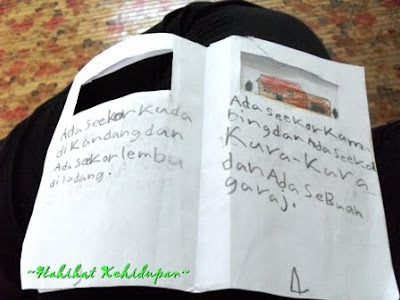 Ada seekor kuda
di kandang dan
Ada seekor lembu
di ladang.
Ada seekor kam
bing dan Ada seekor
Kura-kura
dan Ada seBuah
garaj.
~Hakikat Kehidupan~